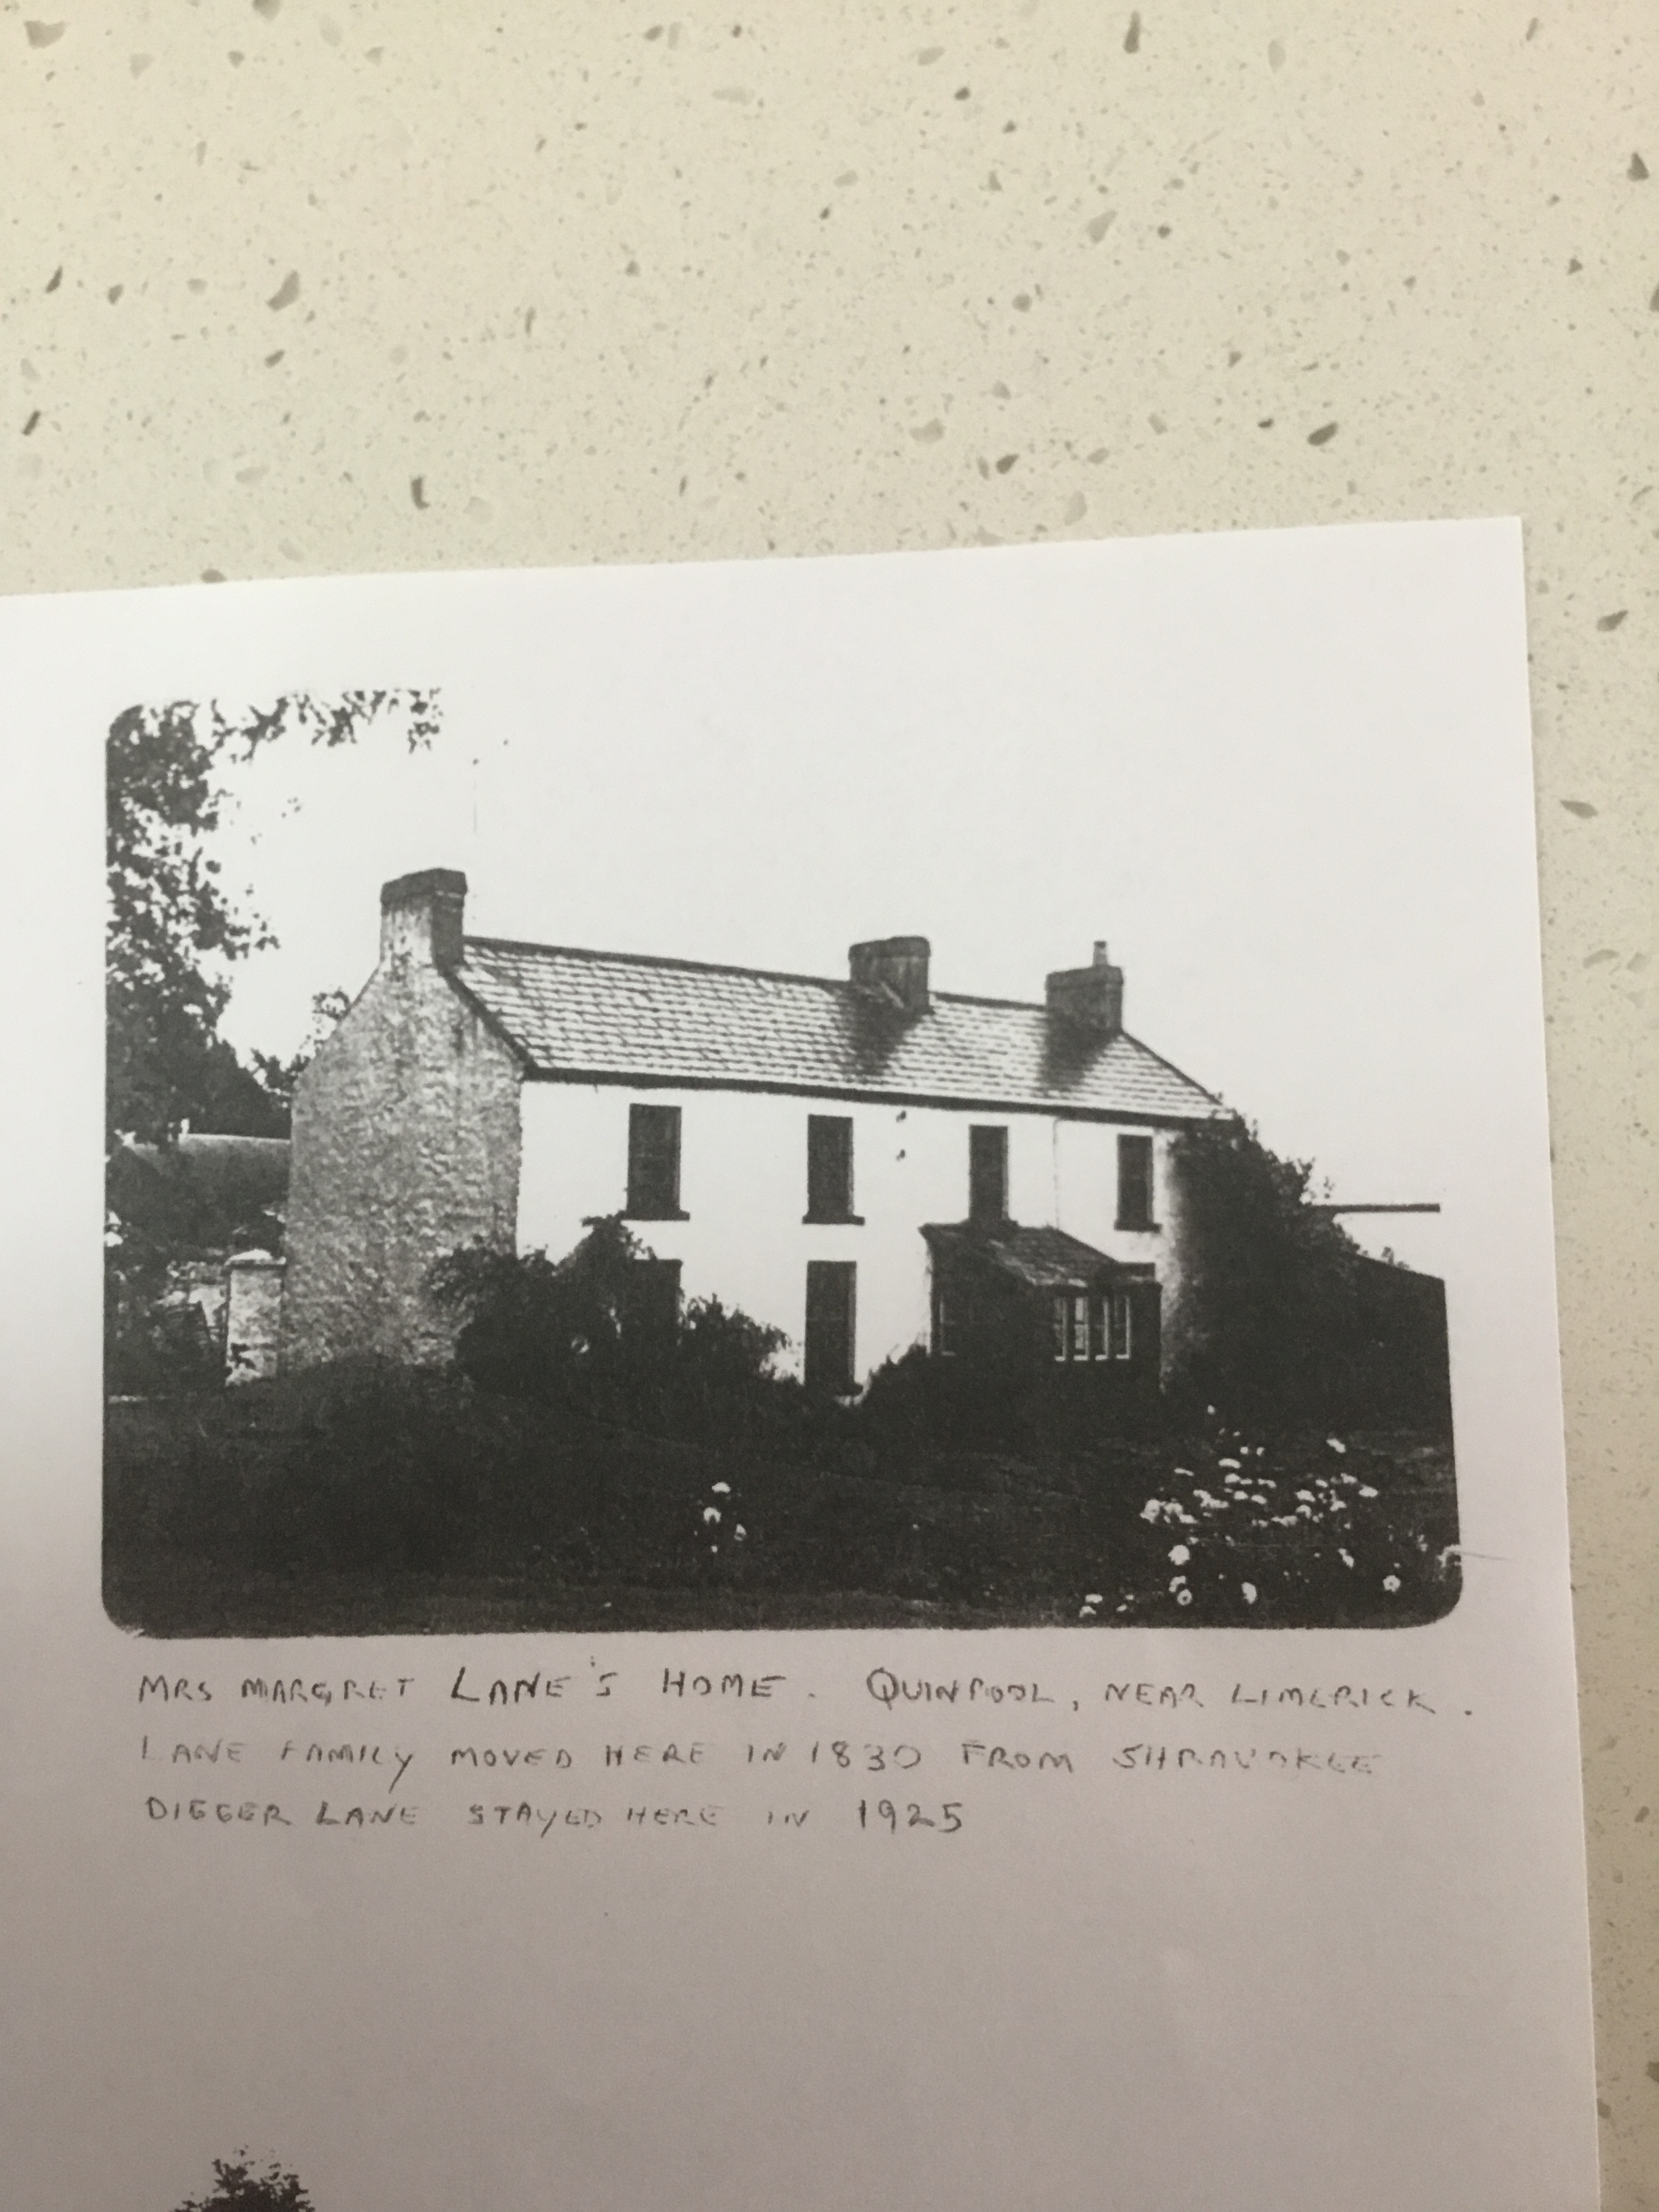 MRS MARGRET LANE'S HOME. QUINPOOL, NEAR LIMERICK.
LANE FAMILY MOVED HERE IN 1830 FROM SHRAVOKEE
DIGGER LANE STAYED HERE IN 1925